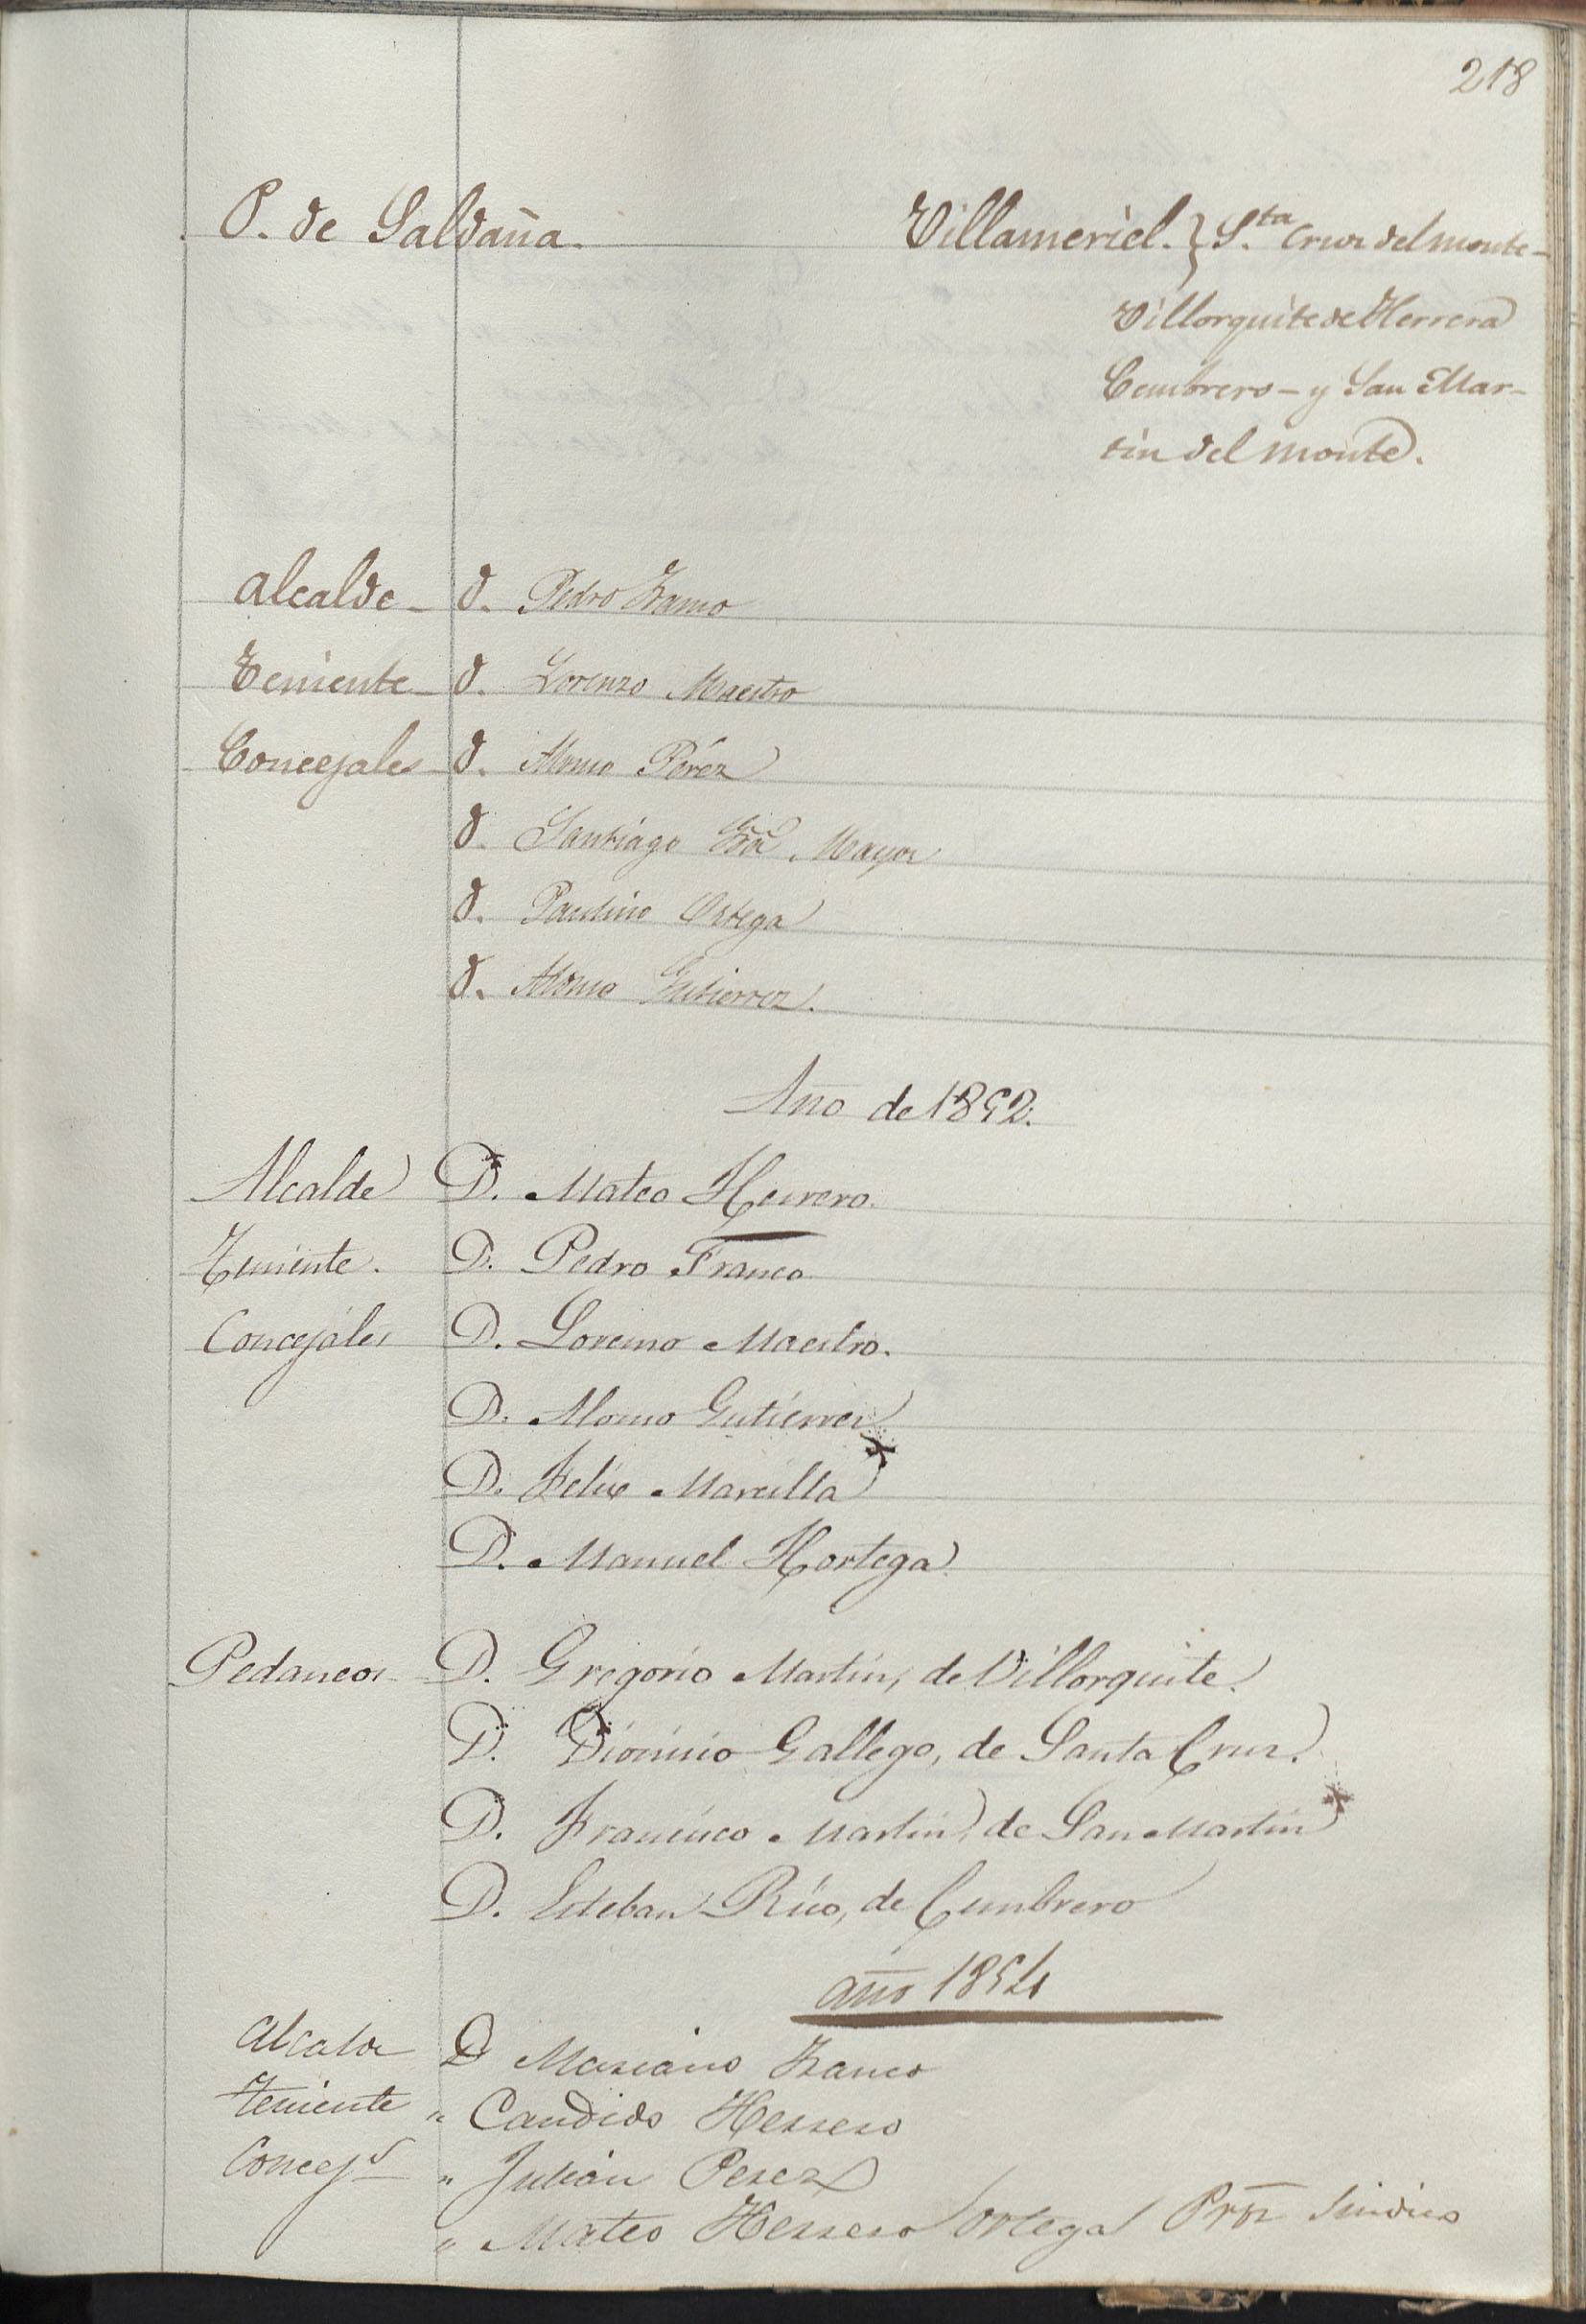 218
P. de Saldaña. Villameriel. } S.ta Cruz del monte-
Villorquite de Herrera
Cembrero - y San Mar-
tin del monte.
Alcalde - D. Pedro Franco
Teniente - D. Lorenzo Maestro
Concejales - D. Alonso Pérez
D. Santiago Gra Mayor
D. Paulino Ortega
D. Alonso Gutierrez.
Año de 1852.
Alcalde D. Mateo Herrero.
Teniente. D. Pedro Franco
Concejales D. Lorenzo Maestro.
D. Alonso Gutierrez
D. Felix Marcilla
D. Manuel Hortega
Pedaneos D. Gregorio Martin, de Villorquite.
D. Dionisio Gallego, de Santa Cruz.
D. Francisco Martin, de San Martin
D. Esteban Rico, de Cembrero
año 1854
Alcalde D Mariano Franco
Teniente " Candido Herrero
Concejs " Julian Perez
" Mateo Herrero Ortega Pror Sindico